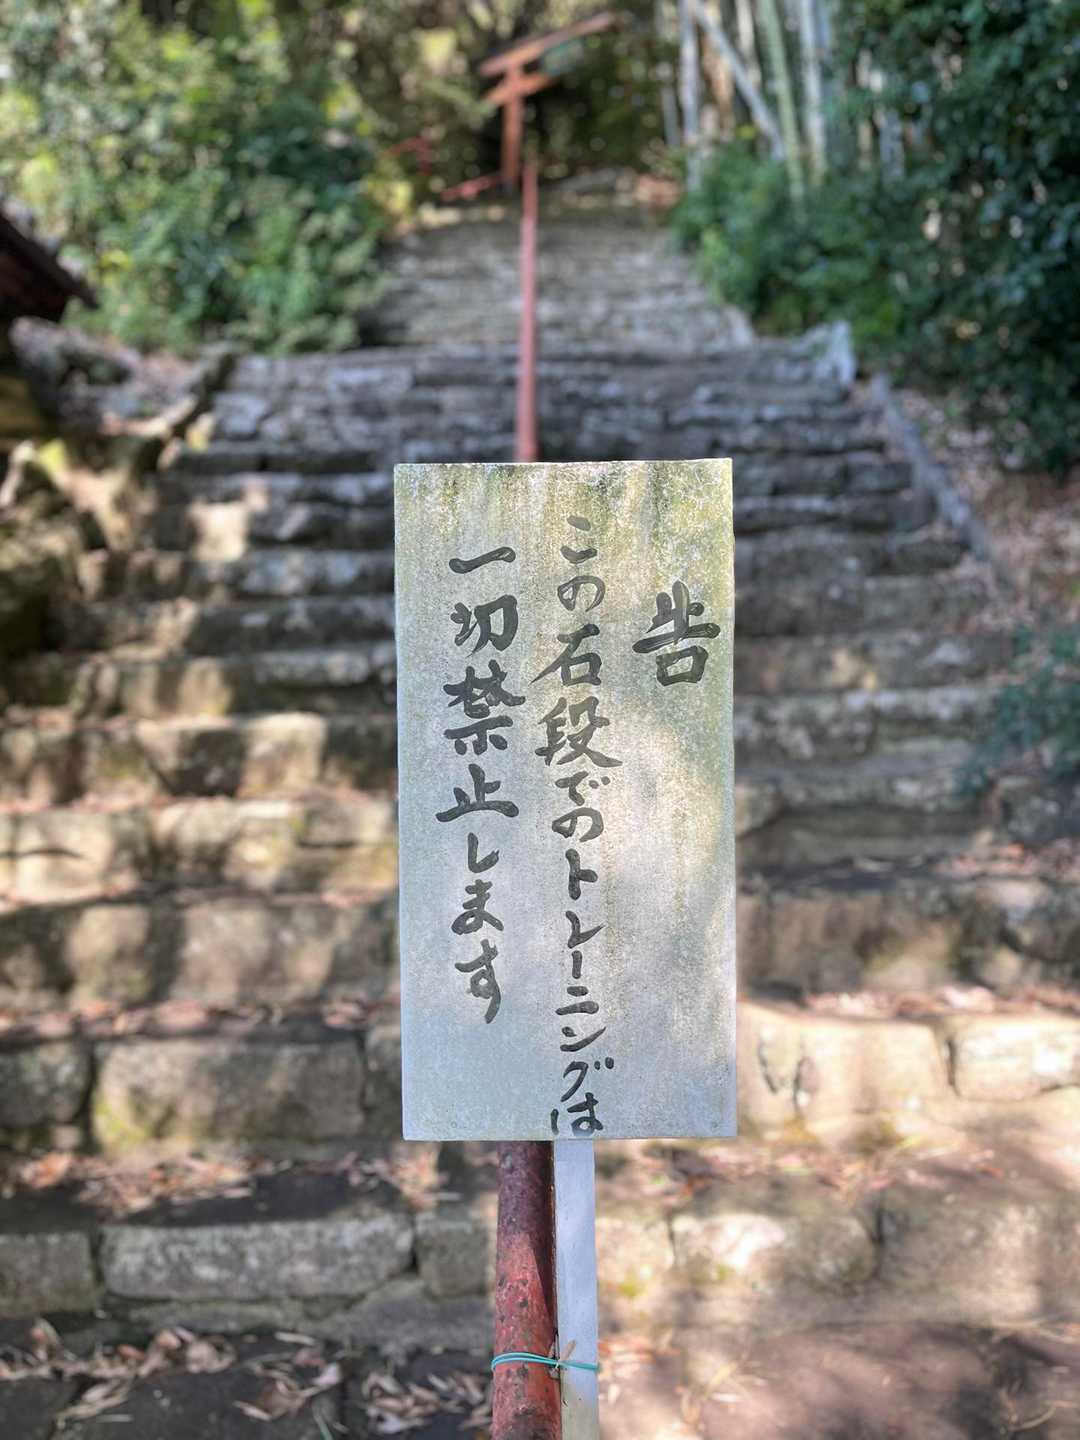 告
この石段でのトレーニングは
一切禁止します